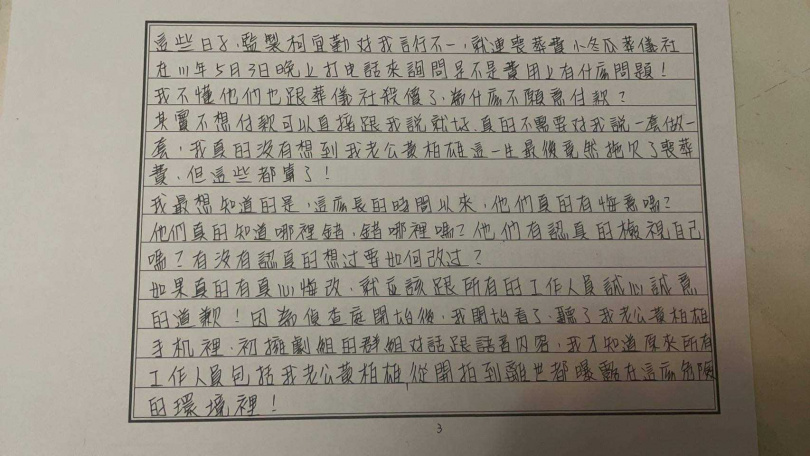 這些日子,監製柯宜勤对我言行不一,就連喪葬費小冬瓜葬儀社
在111年5月3日晚上打电話來詢問是不是費用上有什広問題!
我不懂他們也跟葬儀社殺價了,為什広不願意付款?
其實不想付款可以直接跟我說就好,真的不需要对我說一套做一
套,我真的沒有想到我老公黃柏雄這一生最後竟然拖欠了喪葬
費,但這些都算了!
我最想知道的是,這広長的時間以來,他們真的有悔意嗎?
他們真的知道哪裡錯,錯哪裡嗎?他們有認真的檢視自己
嗎?有沒有認真的想过要如何改过?
如果真的有真心悔改,就应該跟所有的工作人員誠心誠意
的道歉!因為偵查庭開始後,我開始看了、聽了我老公黃柏雄
手机裡、初擁劇組的群組对話跟語音内容,我才知道原來所有
工作人員包括我老公黃柏雄,從開拍到離世都曝露在這広危險
的環境裡!
3